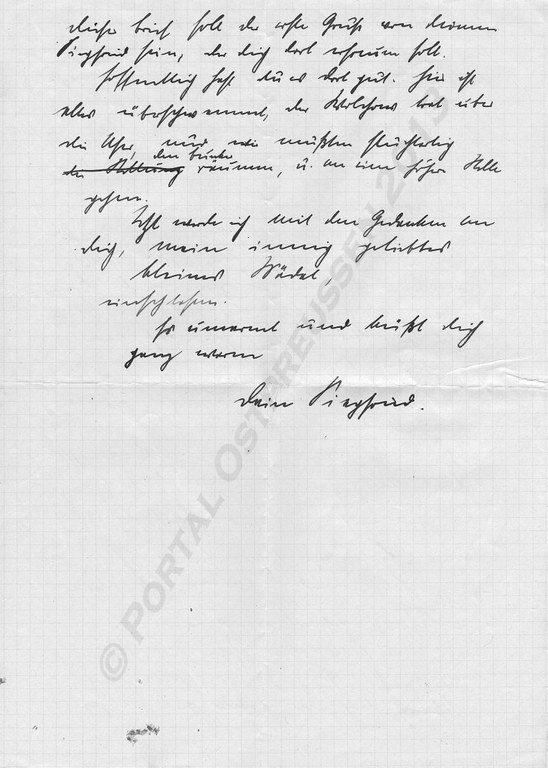 dieser Brief soll der erste Gruß von deinem
Siegfried sein, der dich dort erfreuen soll.
Hoffentlich hast du es dort gut. Hier ist
alles überschwemmt, der Wolchow trat über
die Ufer, und wir mußten
den Bunker
die Stellung räumen, u. an eine höhere Stelle
gehen.
Jetzt werde ich mit den Gedanken an
dich, mein innig geliebtes
kleines Mädel,
einschlafen.
Es umarmt und küßt dich
ganz warm
Dein Siegfried.
© PORTAL OSTPREUSSEN 2013